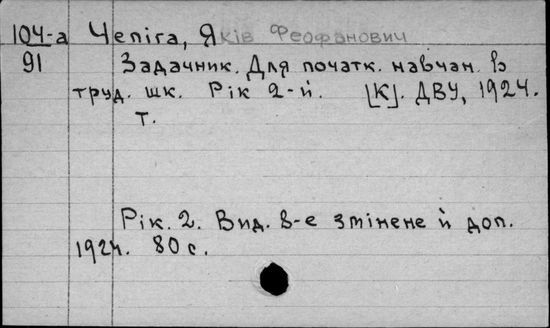 104-а Чепіга, Яків Феофанович
91 Задачник. Для початк. навчан. в
труд. шк. Рік 2-й. [К]. ДВУ, 1924.
т.
Рік. 2. Вид. 8-е змінене й доп.
1924. 80 с.